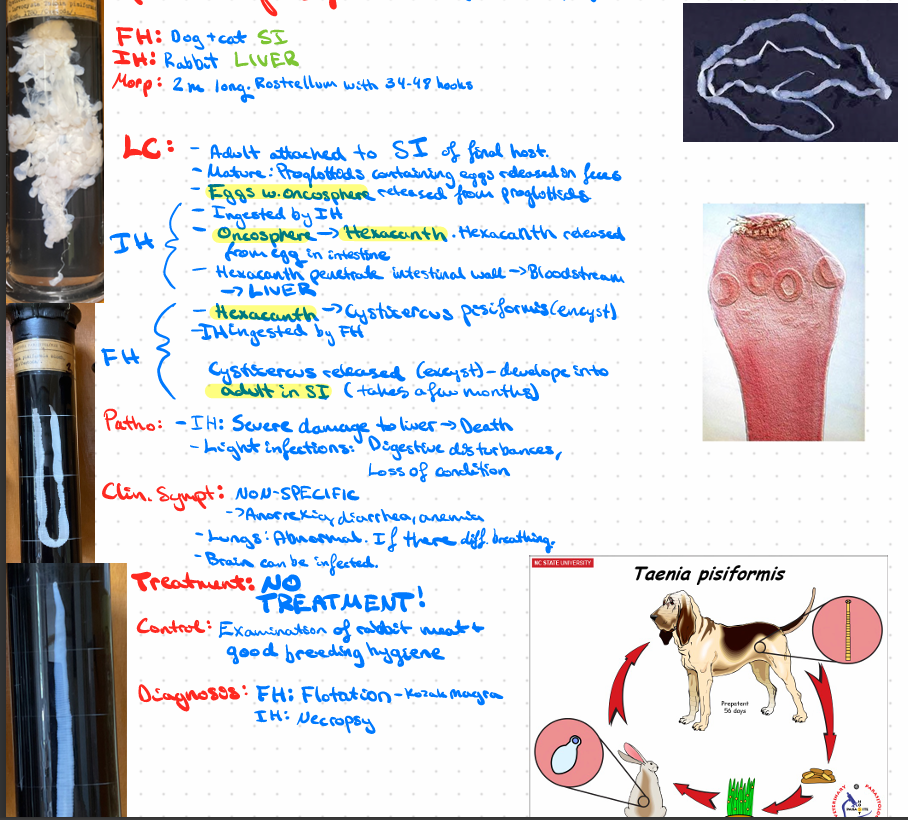 FH: Dog + cat SI
IH: Rabbit LIVER
Morp: 2m long. Rostrellum with 34-48 hooks
LC: - Adult attached to SI of final host.
- Mature: Proglottids containing eggs released in feces
- Eggs w. oncosphere released from proglottids
IH
- Ingested by IH
- Oncosphere → Hexacanth. Hexacanth released
from egg in intestine
- Hexacanth penetrate intestinal wall → Bloodstream
→ LIVER
FH
- Hexacanth → Cysticercus pisiformis (encyst)
- IH ingested by FH
Cysticercus released (excyst) - develope into
adult in SI (takes a few months)
Patho: - IH: Severe damage to liver → Death
- Light infections: Digestive disturbances,
Loss of condition
Clin. Sympt: NON-SPECIFIC
-> Anorrexia, diarrhea, anemia
- Lungs: Abnormal. If there diff. breathing.
- Brain can be infected.
Treatment: NO
TREATMENT!
Control: Examination of rabbit meat +
good breeding hygiene
Diagnosis: FH: Flotation - Kozak Magra
IH: Necropsy
NC STATE UNIVERSITY
Taenia pisiformis
Prepatent
56 days